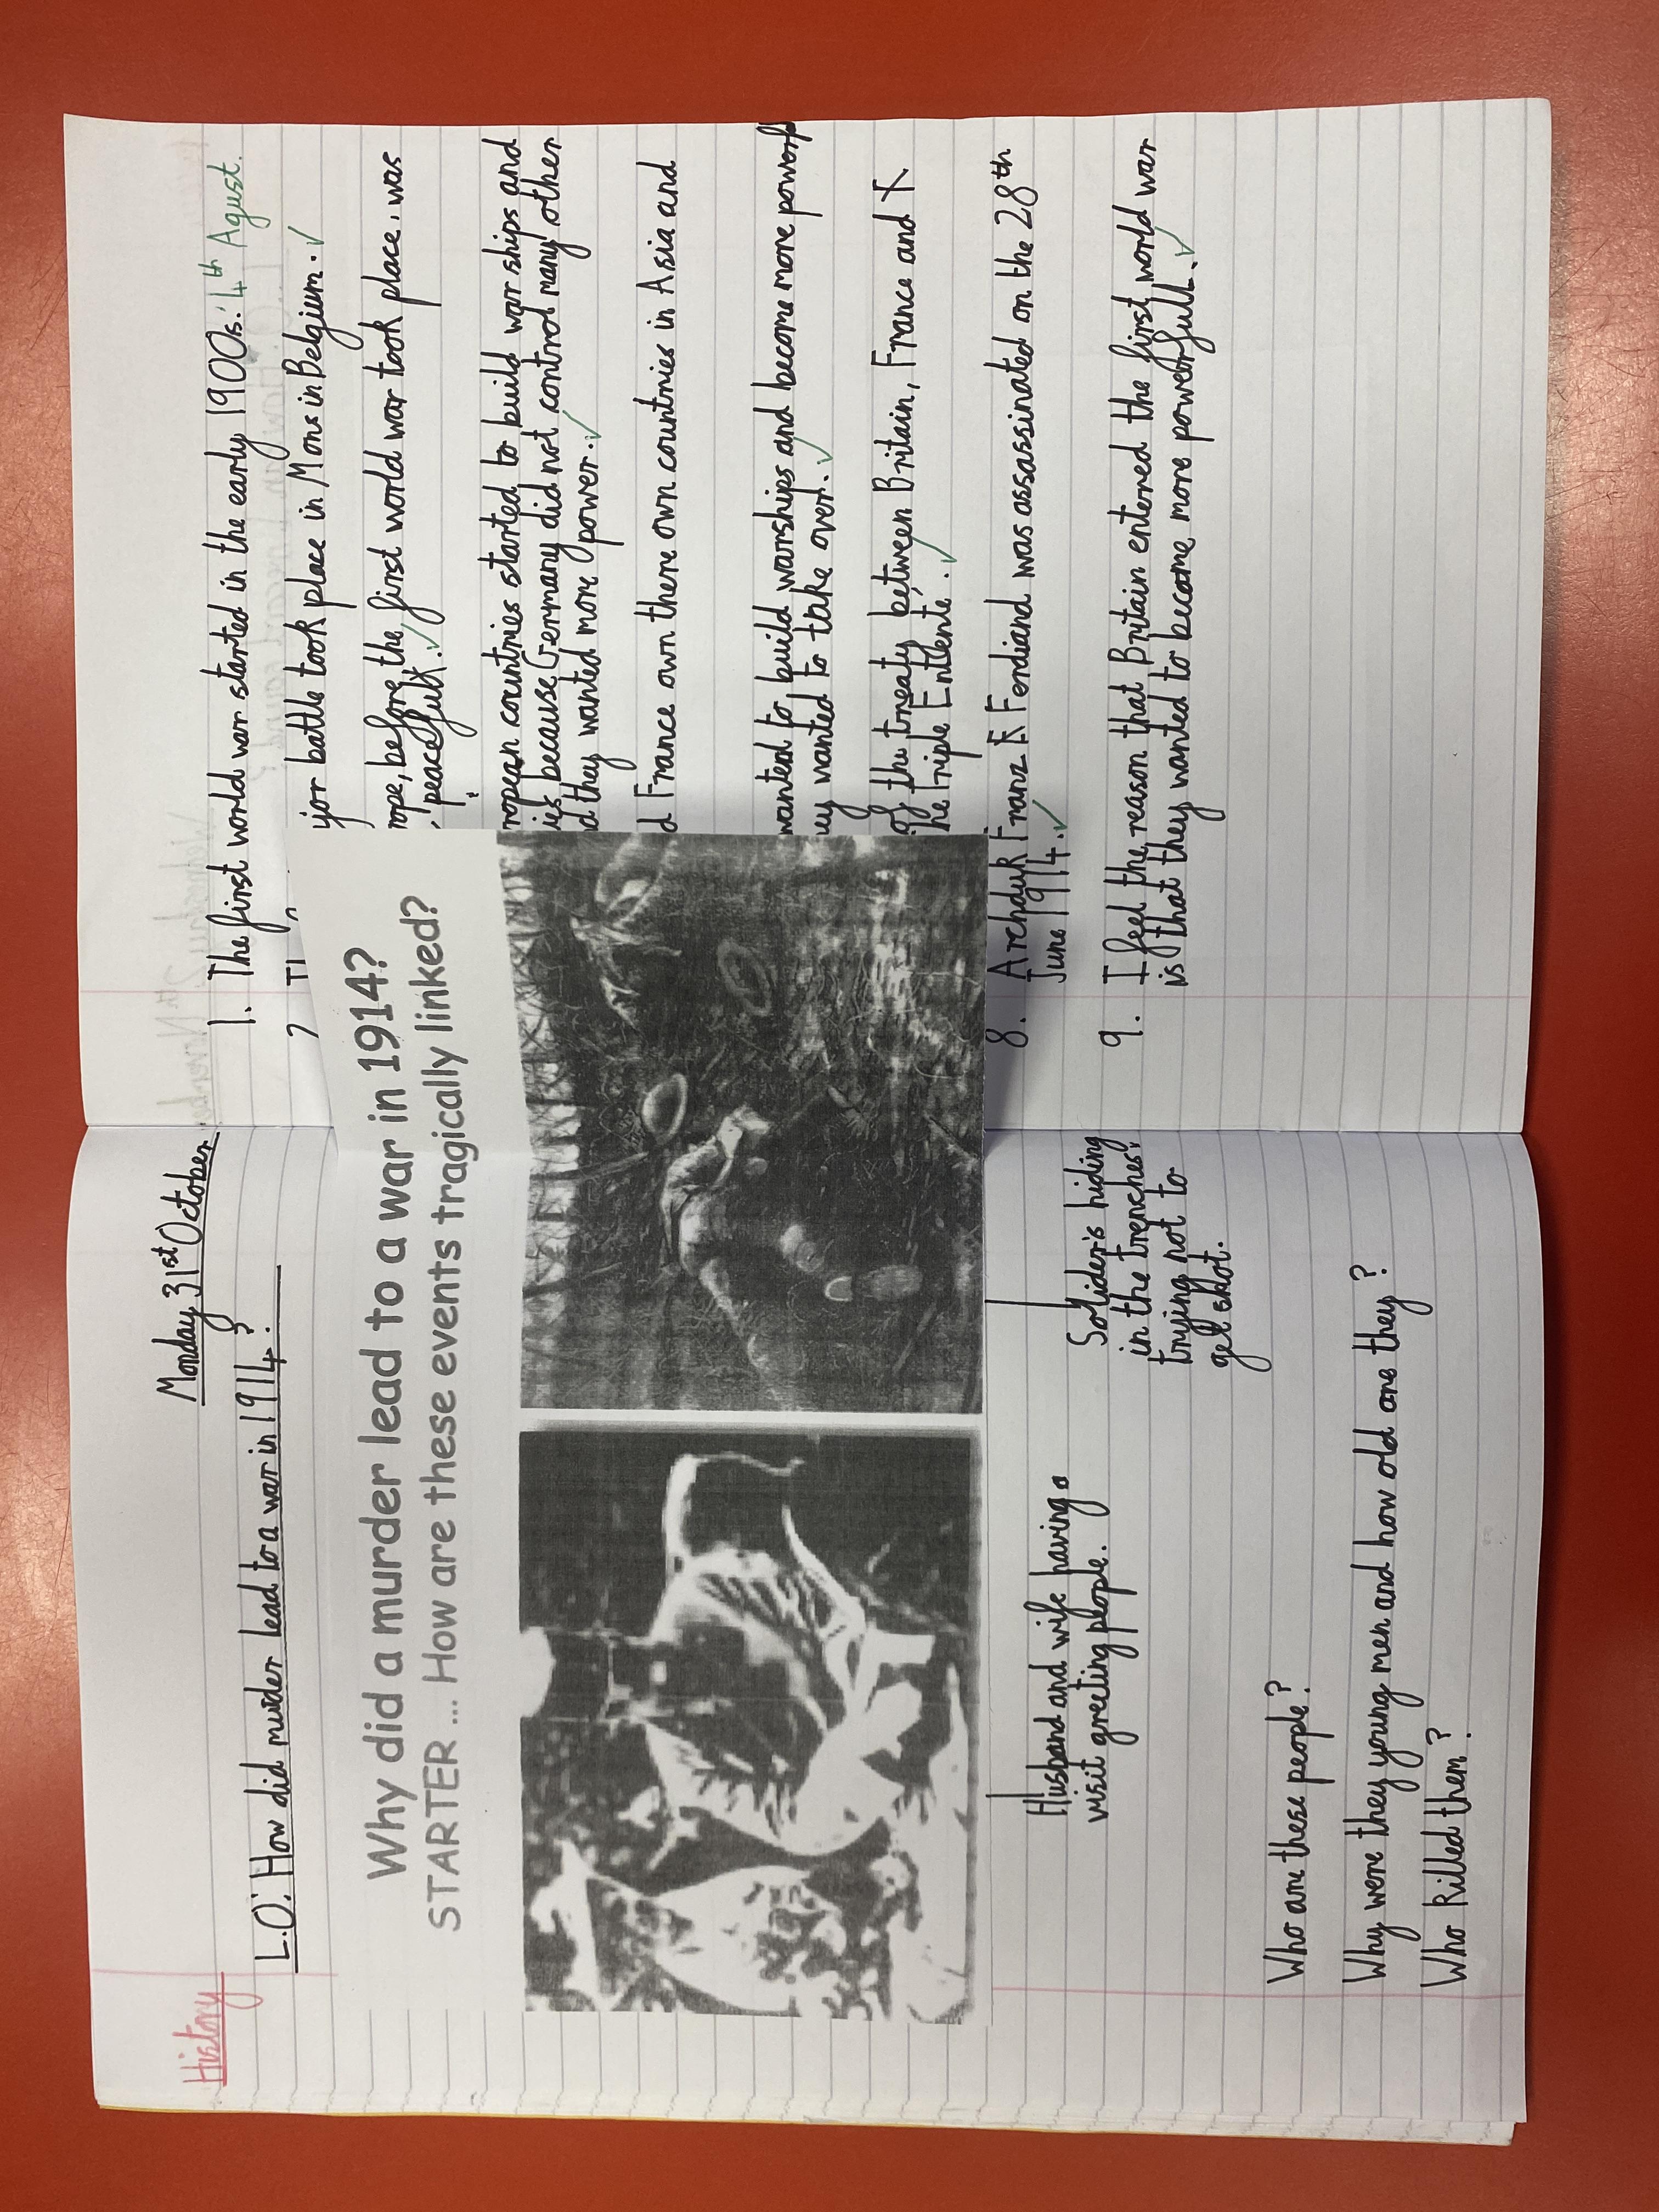 History
Monday 31st October
L.O: How did muder lead to a war in 1914?
Why did a murder lead to a war in 1914?
STARTER ... How are these events tragically linked?
Husband and wife having a
visit greeting people.
Solider's hiding
in the trenches
trying not to
get shot.
Who are these people?
Why were they young men and how old are they?
Who killed them?
1. The first world war started in the early 1900s. 4th Agust.
2
jor battle took place in Mons in Belgium. ✓
rope, before the first world war took place, was
peacefull. ✓
ropean countries started to build war ships and
because Germany did not control many other
d they wanted more power. ✓
d France own there own countries in Asia and
wanted to build warships and become more powerf
ey wanted to take over. ✓
of the treaty between Britain, France and
he Triple Entente. ✓
8. Archduk Franz Ferdiand was assassinated on the 28th
June 1914. ✓
9. I feel the reason that Britain entered the first world war
is that they wanted to become more powerfull. ✓